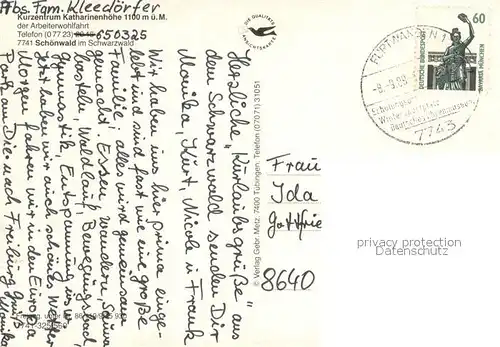 Abs. Fam. Kleedörfer
Kurzentrum Katharinenhöhe 1100 m ü. M.
der Arbeiterwohlfahrt
Telefon (0 77 23) 650325
7741 Schönwald im Schwarzwald
Herzliche „Kurlaubsgrüße" aus
dem Schwarzwald senden Dir
Monika, Kurt, Nicole u. Frank
Wir haben uns hier prima einge-
lebt und sind fast wie eine große
Familie; alles wird gemeinsam
gemacht. Essen, wandern, Schwimmen
basteln, Waldlauf, Bewegungsbad,
Gymnastik, Entspannung usw.
Jetzt haben wir auch schönes Wetter.
Morgen fahren wir in den Europa
Park, am Die. nach Freiburg. Gruß Monika
© Verlag Gebr. Metz, 7400 Tübingen, Telefon (07071) 31051
DIE QUALITÄTS
ANSICHTSKARTE
FURTWANGEN 1
7743
60
DEUTSCHE BUNDESPOST
BAVARIA MÜNCHEN
Frau
Ida
Gottfrie
8640
privacy protection
Datenschutz